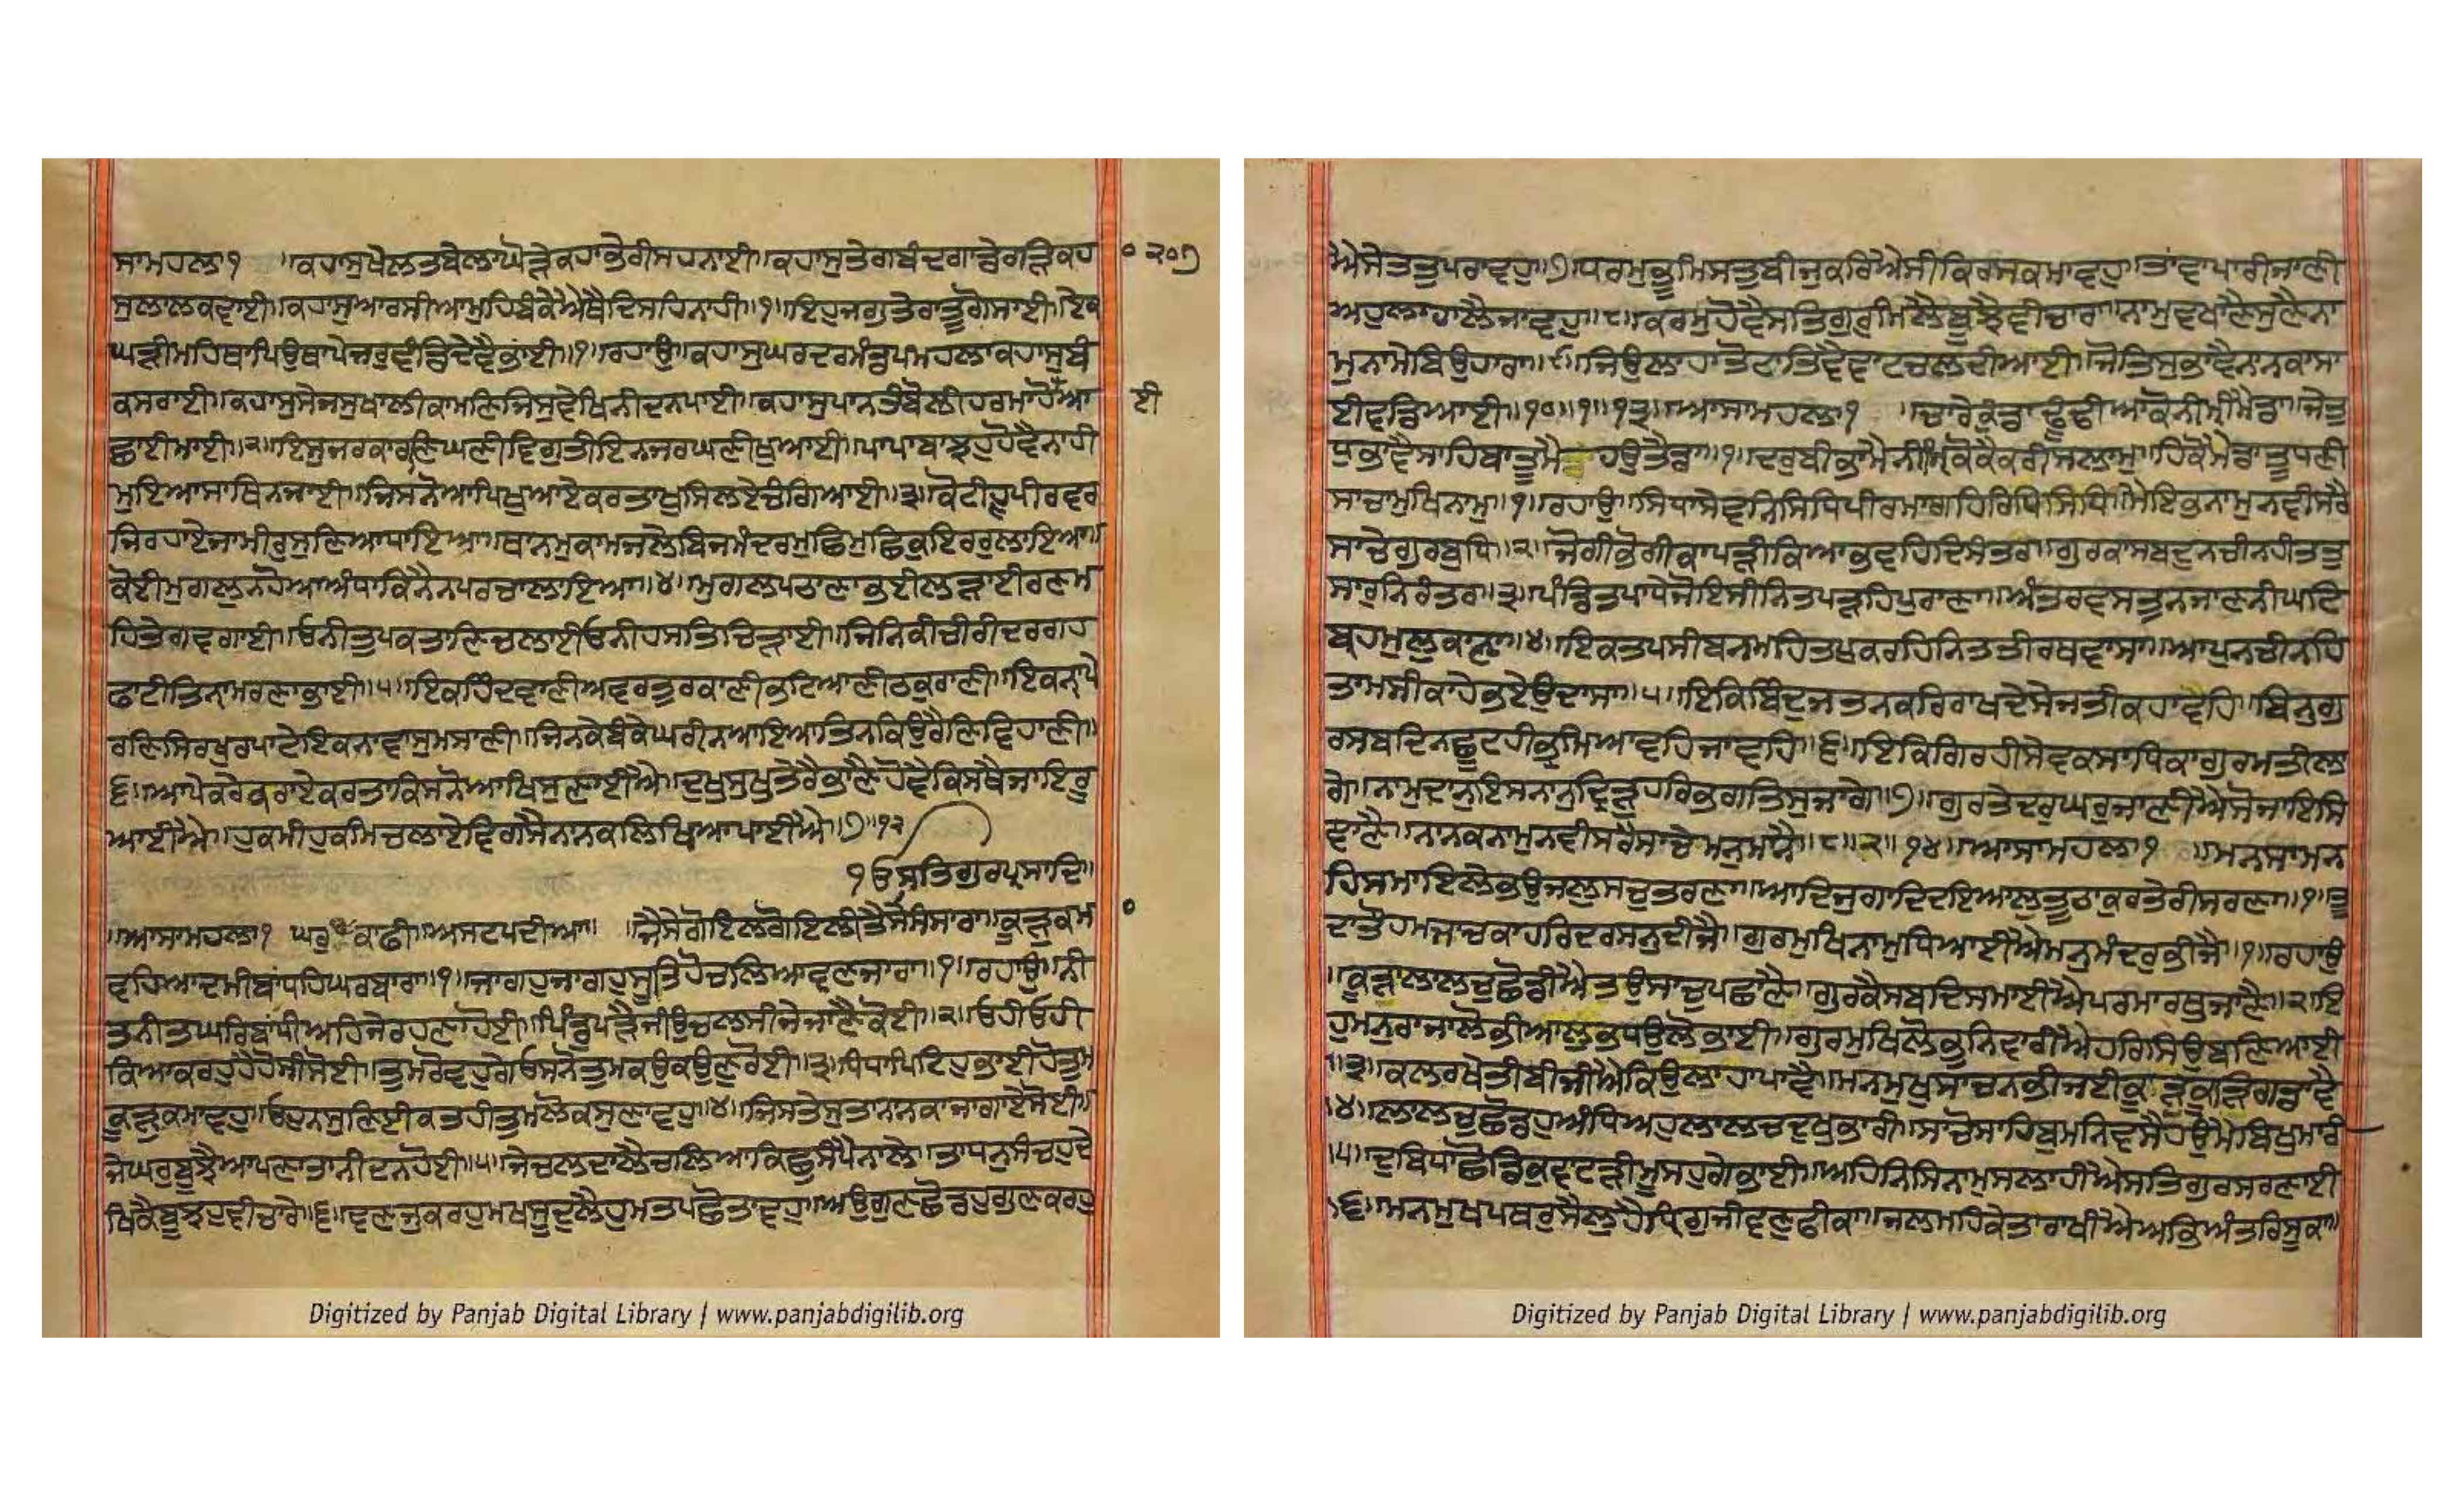 ਸਾਮਹਲਾ੧ ॥ਕਹਾਸੁਖੇਲਤਬੇਲਾਘੋੜੇਕਹਾਭੇਰੀਸਹਨਾਈ॥ਕਹਾਸੁਤੇਗਬੰਦਗਾਡੇਰੜਿਕਹਾ
ਸੁਲਾਲਕਵਾਈ॥ਕਹਾਸੁਆਰਸੀਆਮੁਹਿਬੰਕੇਐਥੈਦਿਸਹਿਨਾਹੀ॥੧॥ਇਹੁਜਗੁਤੇਰਾਤੂਗੋਸਾਈ॥ਏਕ
ਘੜੀਮਹਿਥਾਪਿਉਥਾਪੇਜਰੁਵੰਡਿਦੇਵੈਭਾਂਈ॥੧॥ਰਹਾਉ॥ਕਹਾਸੁਘਰਦਰਮੰਡਪਮਹਲਾਕਹਾਸੁਬੰ
ਕਸਰਾਈ॥ਕਹਾਸੁਸੇਜਸੁਖਾਲੀਕਾਮਣਿਜਿਸੁਵੇਖਿਨੀਦਨਪਾਈ॥ਕਹਾਸੁਪਾਨਤੰਬੋਲੀਹਰਮਾਹੋਈਆ
ਛਾਈਮਾਈ॥੨॥ਇਸੁਜਰਕਾਰਣਿਘਣੀਵਿਗੁਤੀਇਨਜਰਘਣੀਖੁਆਈ॥ਪਾਪਾਬਾਝਹੁਹੋਵੈਨਾਹੀ
ਮੁਇਆਸਾਥਿਨਜਾਈ॥ਜਿਸਨੋਆਪਿਖੁਆਏਕਰਤਾਖੁਸਿਲਏਚੰਗਿਆਈ॥੩॥ਕੋਟੀਹੂਪੀਰਵਰ
ਜਿਰਹਾਏਜਾਮੀਰੁਸੁਣਿਆਧਾਇਆ॥ਥਾਨਮੁਕਾਮਜਲੇਬਿਜਮੰਦਰਮੁਛਿਮੁਛਿਕੁਇਰਰੁਲਾਇਆ॥
ਕੋਈਮੁਗਲੁਨਹੋਆਅੰਧਾਕਿਨੈਨਪਰਚਾਲਾਇਆ॥੪॥ਮੁਗਲਪਠਾਣਾਭਈਲੜਾਈਰਣਮ
ਹਿਤੇਗਵਗਾਈ॥ਓਨੀਤੁਪਕਤਾਣਿਚਲਾਈਓਨੀਹਸਤਿਚਿੜਾਈ॥ਜਿਨਿਕੀਚੀਰੀਦਰਗਹ
ਫਾਟੀਤਿਨਾਮਰਣਾਭਾਈ॥੫॥ਇਕਹਿੰਦਵਾਣੀਅਵਰਤੁਰਕਾਣੀਭਟਿਆਣੀਠਕੁਰਾਣੀ॥ਇਕਨਾਪੇ
ਰਣਿਸਿਰਖੁਰਪਾਟੇਇਕਨਾਵਾਸੁਮਸਾਣੀ॥ਜਿਨਕੇਬੰਕੇਘਰੀਨਆਇਆਤਿਨਕਿਉਰੈਣਿਵਿਹਾਣੀ॥
੬॥ਆਪੇਕਰੇਕਰਾਏਕਰਤਾਕਿਸਨੋਆਖਿਸੁਣਾਈਐ॥ਦੁਖੁਸੁਖੁਤੇਰੈਭਾਣੈਹੋਵੈਕਿਸਥੈਜਾਇਰੂ
ਆਈਐ॥ਹੁਕਮੀਹੁਕਮਿਚਲਾਏਵਿਗਸੈਨਾਨਕਲਿਖਿਆਪਾਈਐ॥੭॥੧੨
੧ਓਸਤਿਗੁਰਪ੍ਰਸਾਦਿ॥
॥ਆਸਾਮਹਲਾ੧ ਘਰੁ੩ਕਾਫੀ॥ਅਸਟਪਦੀਆ॥ ॥ਜੈਸੇਗੋਇਲਗੋਇਲੀਤੈਸੇਸੰਸਾਰਾ॥ਕੂੜੁਕਮ
ਵਹਿਆਦਮੀਬਾਂਧਹਿਘਰਬਾਰਾ॥੧॥ਜਾਗਹੁਜਾਗਹੁਸੂਤਿਹੋਚਲਿਆਵਣਜਾਰਾ॥੧॥ਰਹਾਉ॥ਨੀ
ਤਨੀਤਘਰਿਬਾਂਧੀਅਹਿਜੇਰਹਣਾਹੋਈ॥ਪਿੰਡੁਪੜੈਜੀਉਚਲਸੀਜੇਜਾਣੈਕੋਈ॥੨॥ਓਹੀਓਹੀ
ਕਿਆਕਰਹੁਹੈਹੋਸੀਸੋਈ॥ਤੁਮਰੋਵਹੁਗੇਓਸਨੋਤੁਮਕਉਕਉਣੁਰੋਈ॥੩॥ਧਿਧਾਪਿਟਿਹੁਭਾਈਹੋਤੁਮ
ਕੂੜੁਕਮਾਵਹੁ॥ਓਹੁਨਸੁਣਈਕਤਹੀਤੁਮਲੋਕਸੁਣਾਵਹੁ॥੪॥ਜਿਸਤੇਸੁਤਾਨਾਨਕਾਜਾਗਾਏਸੋਈ॥
ਜੇਘਰੁਬੂਝੈਆਪਣਾਤਾਨੀਦਨਹੋਈ॥੫॥ਜੇਚਲਦਾਲੈਚਲਿਆਕਿਛੁਸੰਪੈਨਾਲੇ॥ਤਾਧਨੁਸੰਚਹੁਦੇ
ਖਿਕੈਬੂਝਹੁਵੀਚਾਰੇ॥੬॥ਵਣਜੁਕਰਹੁਮਖਸੂਦੁਲੈਹੁਮਤਪਛੋਤਾਵਹੁ॥ਅਉਗੁਣਛੋਡਹੁਗੁਣਕਰਹੁ
੦੨੦੭
ਈ
੦
ਐਸੇਤਤੁਪਰਾਵਹੁ॥੭॥ਧਰਮੁਭੂਮਿਸਤੁਬੀਜੁਕਰਿਐਸੀਕਿਰਸਕਮਾਵਹੁ॥ਤਾਂਵਾਪਾਰੀਜਾਣੀ
ਅਹੁਲਾਹਾਲੈਜਾਵਹੁ॥੮॥ਕਰਮੁਹੋਵੈਸਤਿਗੁਰੁਮਿਲੈਬੂਝੈਵੀਚਾਰਾ॥ਨਾਮੁਵਖਾਣੈਸੁਣੈਨਾ
ਮੁਨਾਮੇਬਿਉਹਾਰਾ॥੯॥ਜਿਉਲਾਹਾਤੋਟਾਤਿਵੈਵਾਟਚਲਦੀਆਈ॥ਜੋਤਿਸੁਭਾਵੈਨਾਨਕਾਸਾ
ਈਵਡਿਆਈ॥੧੦॥੧॥੧੩॥ਆਸਾਮਹਲਾ੧ ॥ਚਾਰੇਕੁੰਡਾਢੂਢੀਆਕੋਨੀਮ੍ਹੀਮੈਡਾ॥ਜੇਤੁ
ਧੁਭਾਵੈਸਾਹਿਬਾਤੂਮੈ ਹਉਤੈਡਾ॥੧॥ਦਰੁਬੀਭਾਮੈਨੀਮ੍ਹਿਕੋਕੈਕਰੀਸਲਾਮੁ॥ਹਿਕੋਮੈਡਾਤੂਧਣੀ
ਸਾਚਾਮੁਖਿਨਾਮੁ॥੧॥ਰਹਾਉ॥ਸਿਧਾਸੇਵਨਿਸਿਧਪੀਰਮਾਗਹਿਰਿਧਿਸਿਧਿ॥ਮੈਇਕੁਨਾਮੁਨਵੀਸਰੈ
ਸਾਚੇਗੁਰਬੁਧਿ॥੨॥ਜੋਗੀਭੋਗੀਕਾਪੜੀਕਿਆਭਵਹਿਦਿਸੰਤਰ॥ਗੁਰਕਾਸਬਦੁਨਚੀਨਹੀਤਤੁ
ਸਾਰੁਨਿਰੰਤਰ॥੩॥ਪੰਡਿਤਪਾਧੇਜੋਇਸੀਨਿਤਪੜ੍ਹਹਿਪੁਰਾਣਾ॥ਅੰਤਰਵਸਤੁਨਜਾਣਨੀਘਟਿ
ਬ੍ਰਹਮੁਲੁਕਾਣਾ॥੪॥ਇਕਤਪਸੀਬਨਮਹਿਤਪੁਕਰਹਿਨਿਤਤੀਰਥਵਾਸਾ॥ਆਪੁਨਚੀਨਹਿ
ਤਾਮਸੀਕਾਹੇਭਏਉਦਾਸਾ॥੫॥ਇਕਿਬਿੰਦੁਜਤਨਕਰਿਰਾਖਦੇਸੇਜਤੀਕਹਾਵਹਿ॥ਬਿਨੁਗੁ
ਰਸਬਦਿਨਛੂਟਹੀਭ੍ਰਮਿਆਵਹਿਜਾਵਹਿ॥੬॥ਇਕਿਗਿਰਹੀਸੇਵਕਸਾਧਿਕਾਗੁਰਮਤੀਲਾ
ਗੇ॥ਨਾਮੁਦਾਨੁਇਸਨਾਨੁਦ੍ਰਿੜੁਹਰਿਭਗਤਿਸੁਜਾਗੇ॥੭॥ਗੁਰਤੇਦਰੁਘਰੁਜਾਣੀਐਸੋਜਾਇਸਿ
ਵਾਣੈ॥ਨਾਨਕਨਾਮੁਨਵੀਸਰੈਸਾਚੇਮਨੁਮਾਨੈ॥੮॥੨॥੧੪॥ਆਸਾਮਹਲਾ੧ ॥ਮਨਸਾਮਨ
ਹਿਸਮਾਇਲੇਭਉਜਲੁਸਚੁਤਰਣਾ॥ਆਦਿਜੁਗਾਦਿਦਇਆਲੁਤੂਠਾਕੁਰਤੇਰੀਸਰਣਾ॥੧॥ਤੂ
ਦਾਤੋਹਮਜਾਚਕਾਹਰਿਦਰਸਨੁਦੀਜੈ॥ਗੁਰਮੁਖਿਨਾਮੁਧਿਆਈਐਮਨੁਮੰਦਰੁਭੀਜੈ॥੧॥ਰਹਾਉ
॥ਕੂੜਾਲਾਲਚੁਛੋਡੀਐਤਉਸਾਚੁਪਛਾਣੈ॥ਗੁਰਕੈਸਬਦਿਸਮਾਈਐਪਰਮਾਰਥੁਜਾਣੈ॥੨॥ਇ
ਹੁਮਨੁਰਾਜਾਲੋਭੀਆਲੁਭਧਉਲੋਭਾਈ॥ਗੁਰਮੁਖਿਲੋਭੁਨਿਵਾਰੀਐਹਰਿਸਿਉਬਣਿਆਈ
॥੩॥ਕਲਰਖੇਤੀਬੀਜੀਐਕਿਉਲਾਹਾਪਾਵੈ॥ਮਨਮੁਖੁਸਾਚਨਭੀਜਈਕੂੜੁਕੂੜਿਗਡਾਵੈ
॥੪॥ਲਾਲਚੁਛੋਡਹੁਅੰਧਿਅਹੁਲਾਲਚਦੁਖੁਭਾਰੀ॥ਸਾਚੋਸਾਹਿਬੁਮਨਿਵਸੈਹਉਮੈਬਿਖੁਮਾਰੀ
॥੫॥ਦੁਬਿਧਾਛੋਡਿਕੁਵਾਟੜੀਮੂਸਹੁਗੇਭਾਈ॥ਅਹਿਨਿਸਿਨਾਮੁਸਲਾਹੀਐਸਤਿਗੁਰਸਰਣਾਈ
॥੬॥ਮਨਮੁਖਪਥਰੁਸੈਲੁਹੈਧ੍ਰਿਗੁਜੀਵਣੁਫੀਕਾ॥ਜਲਮਹਿਕੇਤਾਰਾਖੀਐਅਭਿਅੰਤਰਿਸੂਕਾ॥
Digitized by Panjab Digital Library | www.panjabdigilib.org
Digitized by Panjab Digital Library | www.panjabdigilib.org